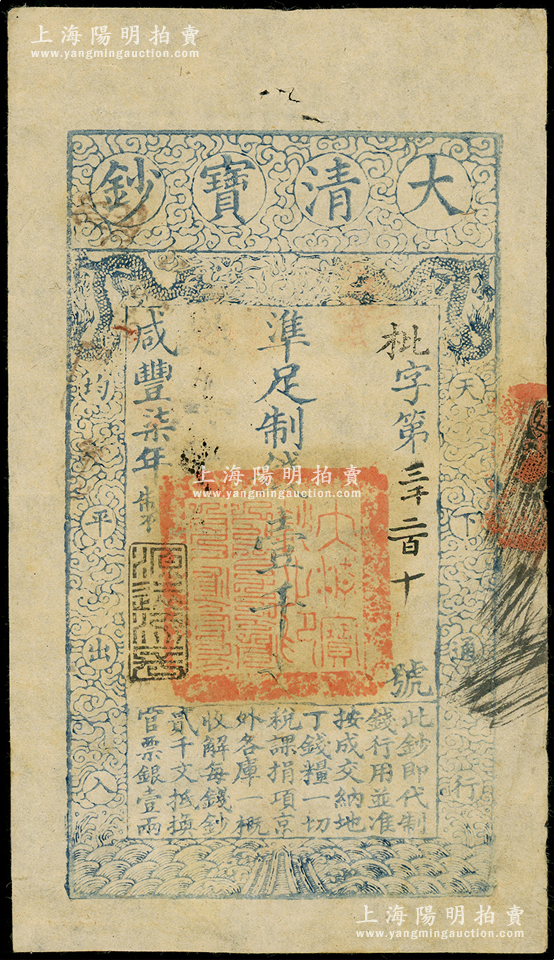 上海陽明拍賣
www.yangmingauction.com
大清寶鈔
天下通行
批字第三千二百十號
準足制錢壹千文
咸豐柒年 製
均平出入
上海陽明拍賣
www.yangmingauction.com
此鈔即代制
錢行用並准
按成交納地
丁錢糧一切
稅課捐項京
外各庫一概
收解每錢鈔
貳千文抵換
官票銀壹兩
上海陽明拍賣
www.yangmingauction.com